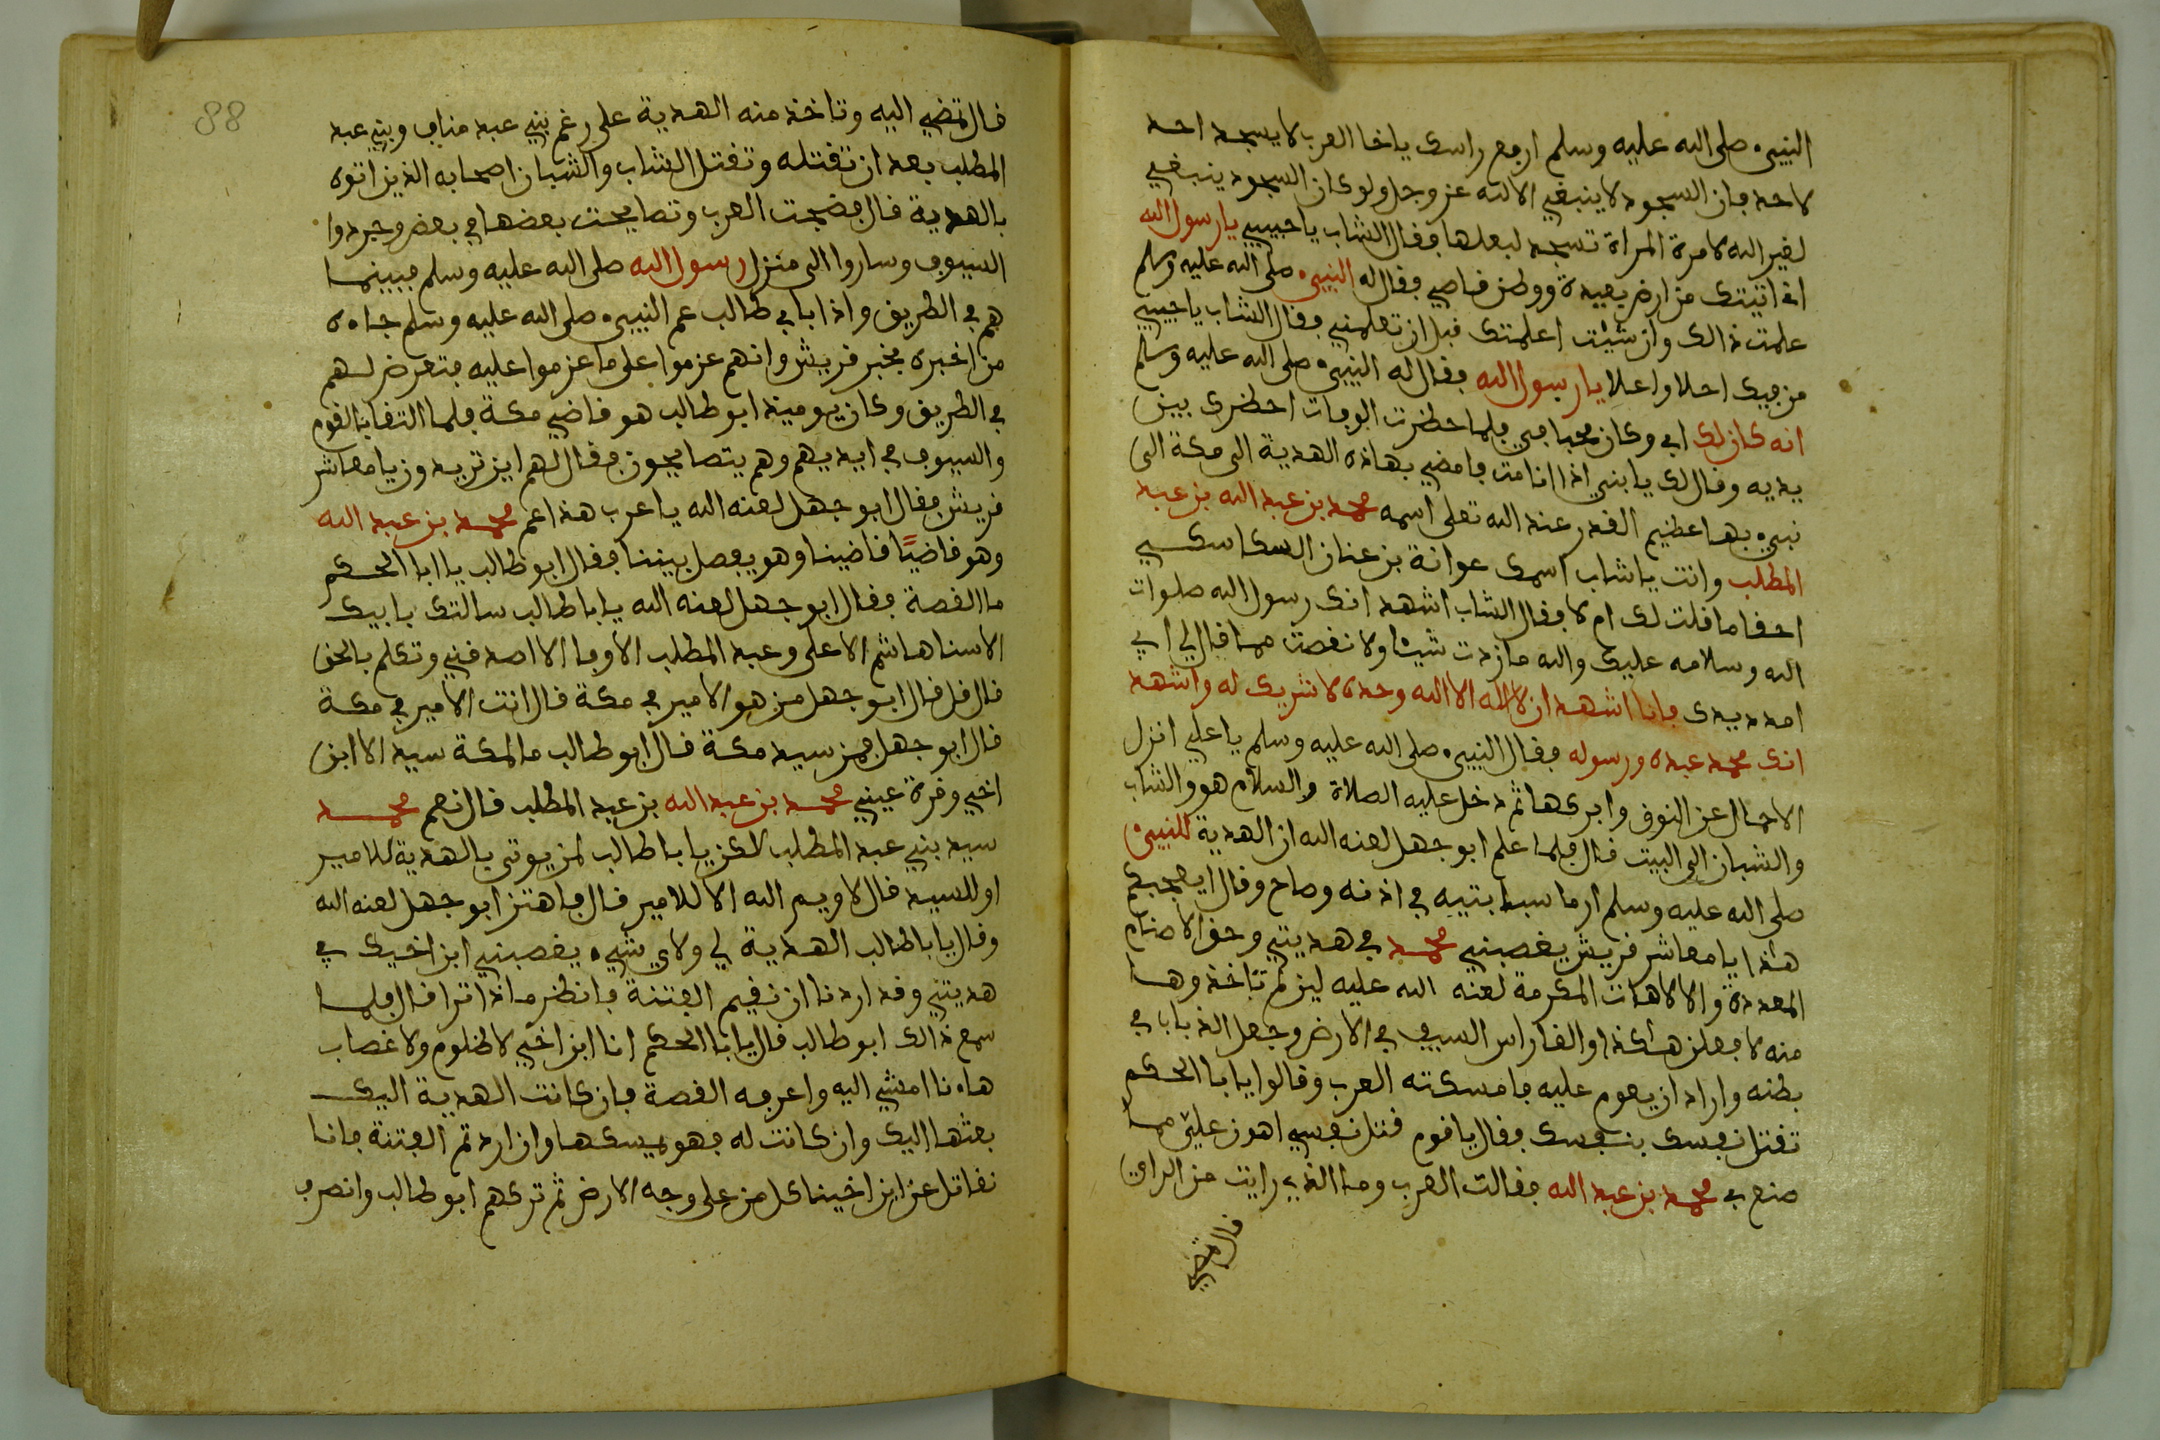 النبيء صلى الله عليه وسلم ارفع راسك ياخا العرب لا يسجد احد
لاحد فان السجود لا ينبغي الا لله عز وجل ولو كان السجود ينبغي
لغير الله لامرة المراة تسجد لبعلها فقال الشاب يا حبيبي يا رسول الله
اني اتيتك من ارض بعيدة ووطن قاصي فقال له النبيء صلى الله عليه وسلم
علمت ذالك وان شئت اعلمتك قبل ان تعلمني فقال الشاب يا حبيبي
من فيك احلا واعلا يا رسول الله فقال له النبيء صلى الله عليه وسلم
انه كان لك اب وكان محبا في فلما حظرت الوفات احظرك بين
يديه وقال لك يا بني اذا انا مت فامضي بهاذه الهدية الى مكة الى
نبيء بها عظيم القدر عند الله تعلى اسمه محمد بن عبد الله بن عبد
المطلب وانت يا شاب اسمك عوانة بن عنان السكاسكي
احقا ما قلت لك ام لا فقال الشاب اشهد انك رسول الله صلوات
الله وسلامه عليك والله ما زدت شيئا ولا نقصت مما قال لي ابي
امدد يدك فانا اشهد ان لا اله الا الله وحده لا شريك له واشهد
انك محمد عبده ورسوله فقال النبيء صلى الله عليه وسلم يا علي انزل
الاحمال عن النوق وابركها ثم دخل عليه الصلاة والسلام هو والشاب
والشبان الى البيت قال فلما علم ابو جهل لعنه الله ان الهدية للنبيء
صلى الله عليه وسلم ارما سبابتيه في اذنه وصاح وقال ايعجبكم
هذا يا معاشر قريش يغصبني محمد في هديتي وحق الاصنام
المعددة والالاهات المكرمة لعنه الله عليه لين لم تاخذوها
منه لافعلن هاكذا والقا راس السيف في الارض وجعل الذباب في
بطنه واراد ان يعوم عليه فامسكته العرب وقالوا يا با الحكم
تقتل نفسك بنفسك فقال يا قوم قتل نفسي اهون علي مما
صنع بي محمد بن عبد الله فقالت العرب وما الذي رايت من الراي
قال تمضي
88
قال تمضي اليه وتاخذ منه الهدية على رغم بني عبد مناف وبني عبد
المطلب بعد ان تقتله وتقتل الشاب والشبان اصحابه الذين اتوه
بالهدية قال فضجت العرب وتصايحت بعضها في بعض وجردوا
السيوف وساروا الى منزل رسول الله صلى الله عليه وسلم فبينما
هم في الطريق واذا بابي طالب عم النبيء صلى الله عليه وسلم جاءه
من اخبره بخبر قريش وانهم عزموا على ما عزموا عليه فتعرض لهم
في الطريق وكان يوميذ ابو طالب هو قاضي مكة فلما التقا بالقوم
والسيوف في ايديهم وهم يتصايحون فقال لهم اين تريدون يا معاشر
قريش فقال ابو جهل لعنه الله يا عرب هذا عم محمد بن عبد الله
وهو قاضيا قاضينا وهو يفصل بيننا فقال ابو طالب يا ابا الحكم
ما القصة فقال ابو جهل لعنه الله يا با طالب سالتك بابيك
الاسنا هاشم الاعلى وعبد المطلب الاوفا الا اصدقني وتكلم بالحق
قال قل قال ابو جهل من هو الامير في مكة قال انت الامير في مكة
قال ابو جهل فمن سيد مكة قال ابو طالب ما لمكة سيد الا ابن
اخي وقرة عيني محمد بن عبد الله بن عبد المطلب قال نعم محمد
سيد بني عبد المطلب لاكن يا با طالب لمن يوتى بالهدية للامير
او للسيد قال لا ويم الله الا للامير قال فاهتز ابو جهل لعنه الله
وقال يا با طالب الهدية لي ولاي شيء يغصبني ابن اخيك في
هديتي وقد اردنا ان نقيم الفتنة فانظر ماذا ترا قال فلما
سمع ذالك ابو طالب قال يا با الحكم انا ابن اخي لا ظلوم ولا غصاب
هاءنا امشي اليه واعرفه القصة فان كانت الهدية اليك
بعثها اليك وان كانت له فهو يمسكها وان اردتم الفتنة فانا
نقاتل عن ابن اخينا كل من على وجه الارض ثم تركهم ابو طالب وانصرف